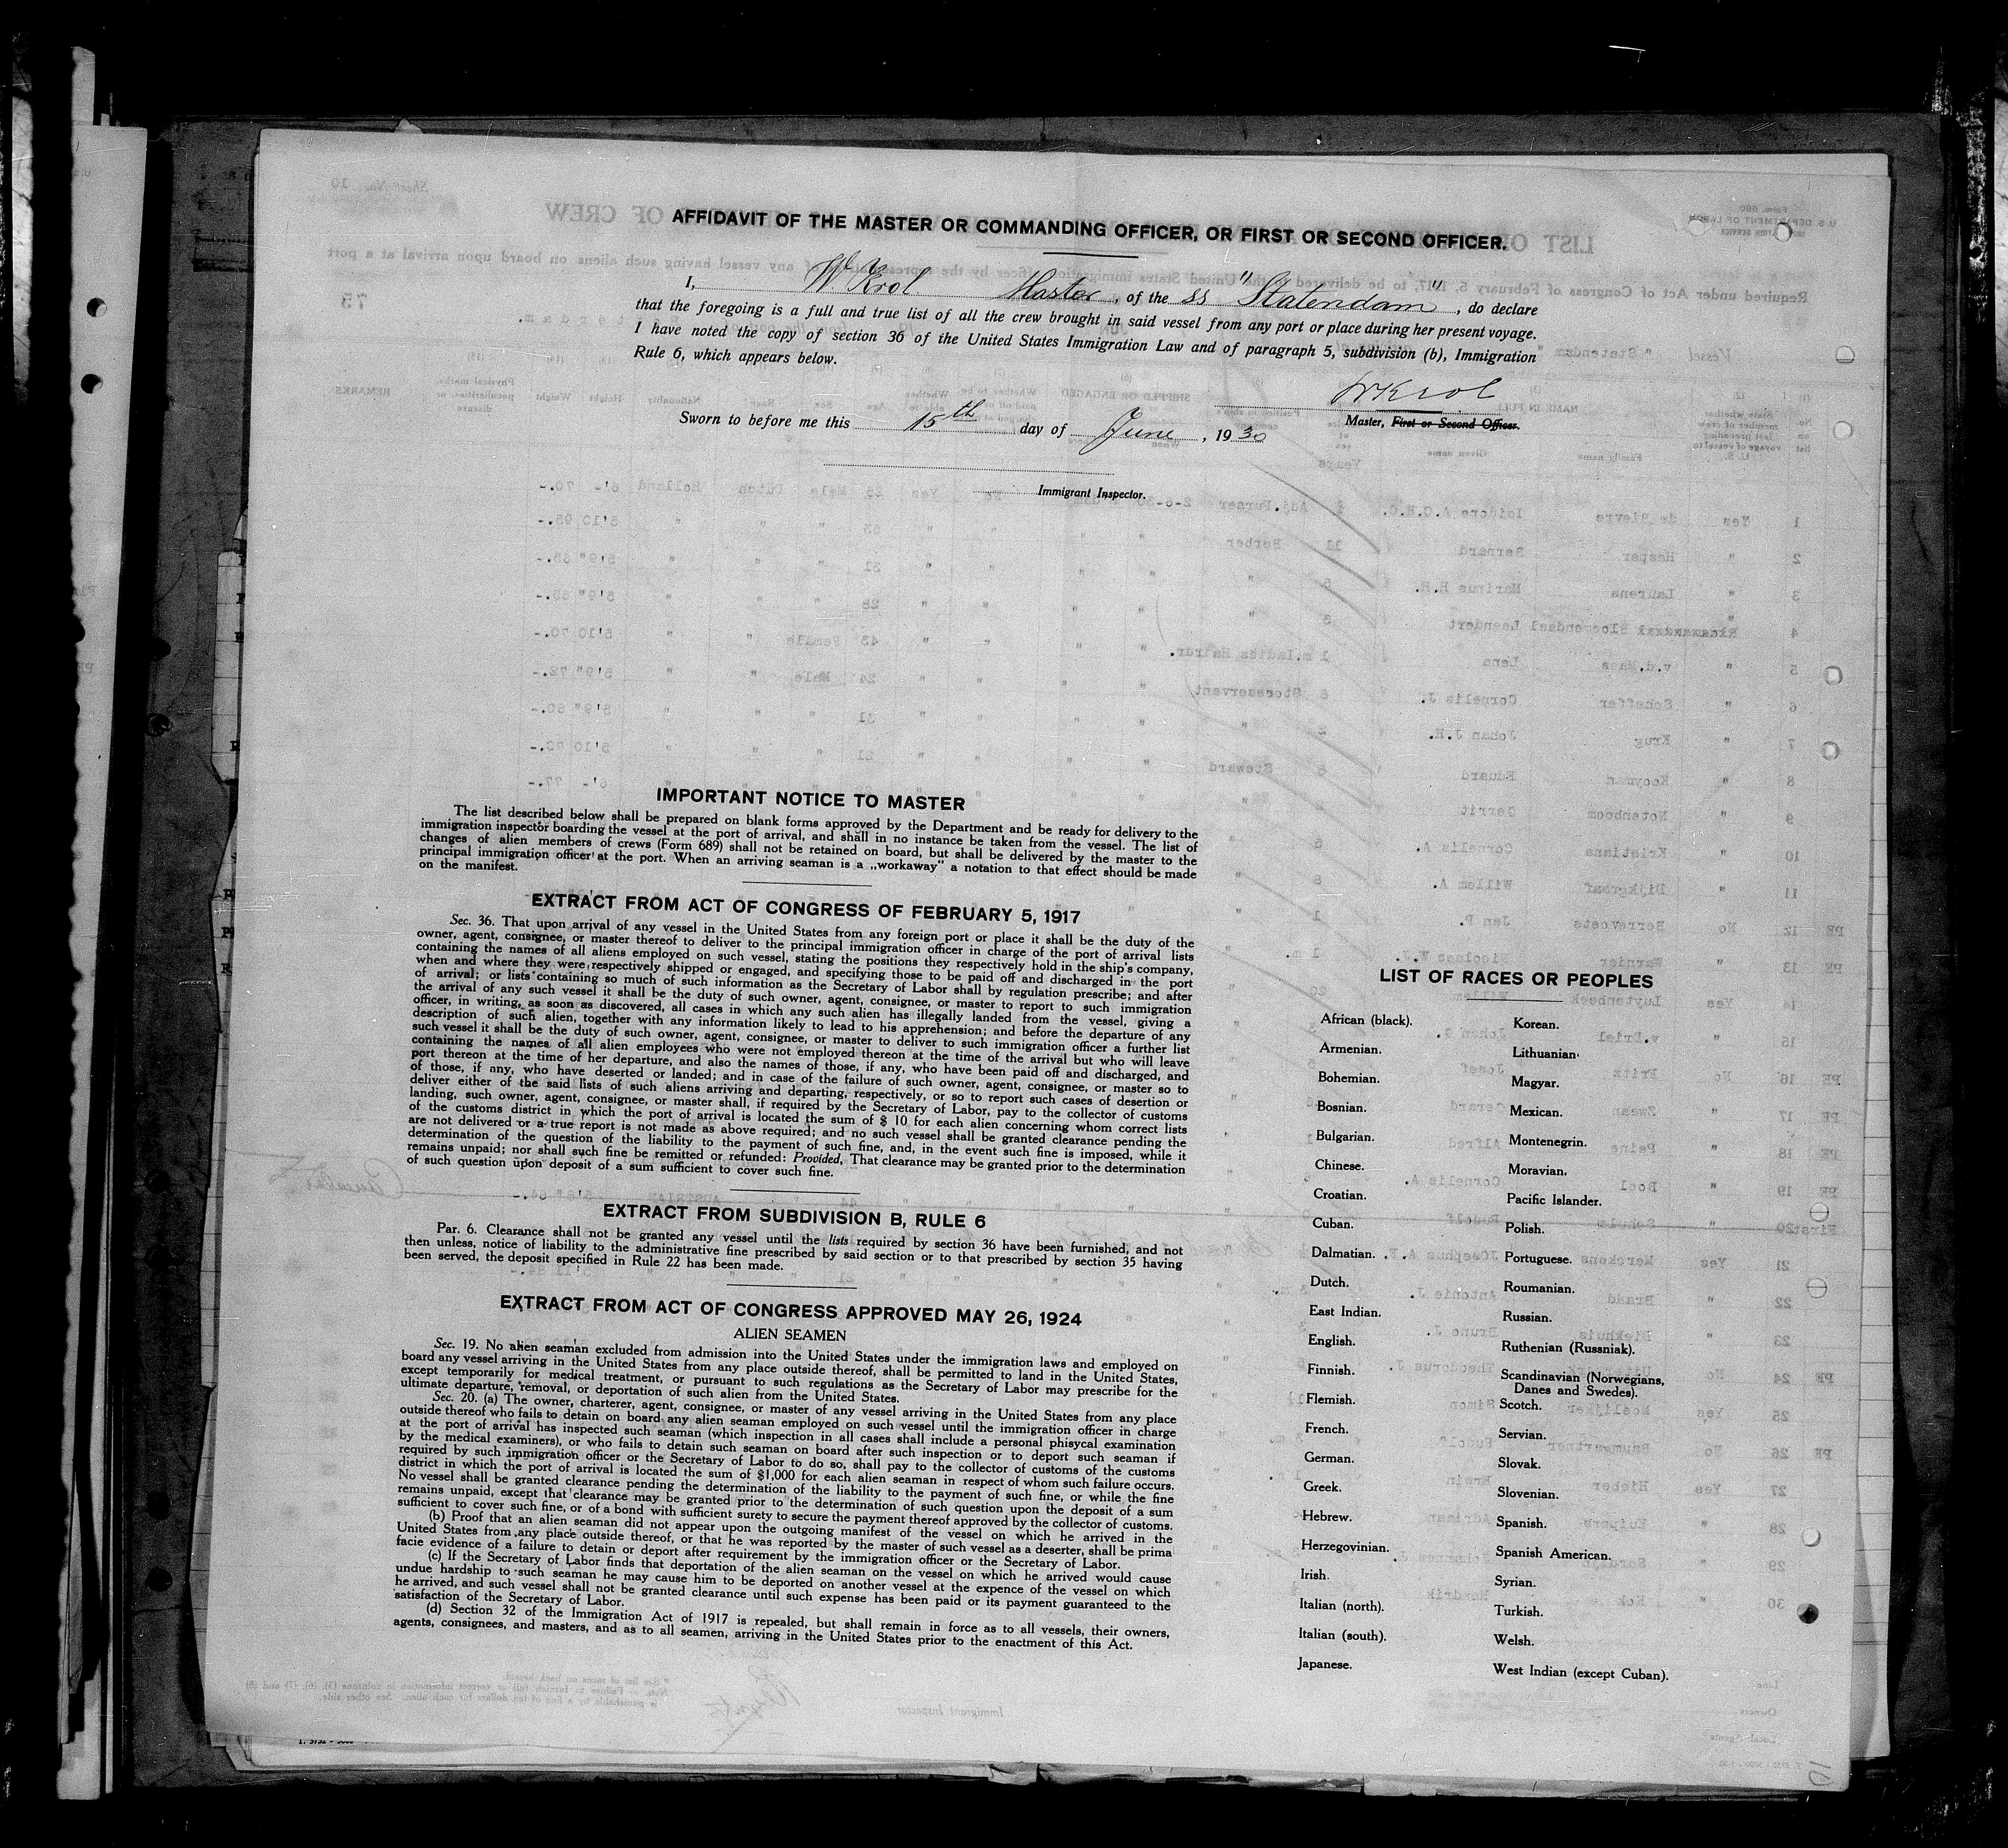 AFFIDAVIT OF THE MASTER OR COMMANDING OFFICER, OR FIRST OR SECOND OFFICER.
I, W Krol Master, of the ss "Statendam", do declare
that the foregoing is a full and true list of all the crew brought in said vessel from any port or place during her present voyage.
I have noted the copy of section 36 of the United States Immigration Law and of paragraph 5, subdivision (b), Immigration
Rule 6, which appears below.
W Krol
Master, First or Second Officer.
Sworn to before me this 15th day of June, 1930
Immigrant Inspector.
IMPORTANT NOTICE TO MASTER
The list described below shall be prepared on blank forms approved by the Department and be ready for delivery to the
immigration inspector boarding the vessel at the port of arrival, and shall in no instance be taken from the vessel. The list of
changes of alien members of crews (Form 689) shall not be retained on board, but shall be delivered by the master to the
principal immigration officer at the port. When an arriving seaman is a „workaway” a notation to that effect should be made
on the manifest.
EXTRACT FROM ACT OF CONGRESS OF FEBRUARY 5, 1917
Sec. 36. That upon arrival of any vessel in the United States from any foreign port or place it shall be the duty of the
owner, agent, consignee, or master thereof to deliver to the principal immigration officer in charge of the port of arrival lists
containing the names of all aliens employed on such vessel, stating the positions they respectively hold in the ship's company,
when and where they were respectively shipped or engaged, and specifying those to be paid off and discharged in the port
of arrival; or lists containing so much of such information as the Secretary of Labor shall by regulation prescribe; and after
the arrival of any such vessel it shall be the duty of such owner, agent, consignee, or master to report to such immigration
officer, in writing, as soon as discovered, all cases in which any such alien has illegally landed from the vessel, giving a
description of such alien, together with any information likely to lead to his apprehension; and before the departure of any
such vessel it shall be the duty of such owner, agent, consignee, or master to deliver to such immigration officer a further list
containing the names of all alien employees who were not employed thereon at the time of the arrival but who will leave
port thereon at the time of her departure, and also the names of those, if any, who have been paid off and discharged, and
of those, if any, who have deserted or landed; and in case of the failure of such owner, agent, consignee, or master so to
deliver either of the said lists of such aliens arriving and departing, respectively, or so to report such cases of desertion or
landing, such owner, agent, consignee, or master shall, if required by the Secretary of Labor, pay to the collector of customs
of the customs district in which the port of arrival is located the sum of $ 10 for each alien concerning whom correct lists
are not delivered or a true report is not made as above required; and no such vessel shall be granted clearance pending the
determination of the question of the liability to the payment of such fine, and, in the event such fine is imposed, while it
remains unpaid; nor shall such fine be remitted or refunded: Provided, That clearance may be granted prior to the determination
of such question upon deposit of a sum sufficient to cover such fine.
EXTRACT FROM SUBDIVISION B, RULE 6
Par. 6. Clearance shall not be granted any vessel until the lists required by section 36 have been furnished, and not
then unless, notice of liability to the administrative fine prescribed by said section or to that prescribed by section 35 having
been served, the deposit specified in Rule 22 has been made.
EXTRACT FROM ACT OF CONGRESS APPROVED MAY 26, 1924
ALIEN SEAMEN
Sec. 19. No alien seaman excluded from admission into the United States under the immigration laws and employed on
board any vessel arriving in the United States from any place outside thereof, shall be permitted to land in the United States,
except temporarily for medical treatment, or pursuant to such regulations as the Secretary of Labor may prescribe for the
ultimate departure, removal, or deportation of such alien from the United States.
Sec. 20. (a) The owner, charterer, agent, consignee, or master of any vessel arriving in the United States from any place
outside thereof who fails to detain on board any alien seaman employed on such vessel until the immigration officer in charge
at the port of arrival has inspected such seaman (which inspection in all cases shall include a personal phisycal examination
by the medical examiners), or who fails to detain such seaman on board after such inspection or to deport such seaman if
required by such immigration officer or the Secretary of Labor to do so, shall pay to the collector of customs of the customs
district in which the port of arrival is located the sum of $1,000 for each alien seaman in respect of whom such failure occurs.
No vessel shall be granted clearance pending the determination of the liability to the payment of such fine, or while the fine
remains unpaid, except that clearance may be granted prior to the determination of such question upon the deposit of a sum
sufficient to cover such fine, or of a bond with sufficient surety to secure the payment thereof approved by the collector of customs.
(b) Proof that an alien seaman did not appear upon the outgoing manifest of the vessel on which he arrived in the
United States from any place outside thereof, or that he was reported by the master of such vessel as a deserter, shall be prima
facie evidence of a failure to detain or deport after requirement by the immigration officer or the Secretary of Labor.
(c) If the Secretary of Labor finds that deportation of the alien seaman on the vessel on which he arrived would cause
undue hardship to such seaman he may cause him to be deported on another vessel at the expence of the vessel on which
he arrived, and such vessel shall not be granted clearance until such expense has been paid or its payment guaranteed to the
satisfaction of the Secretary of Labor.
(d) Section 32 of the Immigration Act of 1917 is repealed, but shall remain in force as to all vessels, their owners,
agents, consignees, and masters, and as to all seamen, arriving in the United States prior to the enactment of this Act.
LIST OF RACES OR PEOPLES
African (black).
Armenian.
Bohemian.
Bosnian.
Bulgarian.
Chinese.
Croatian.
Cuban.
Dalmatian.
Dutch.
East Indian.
English.
Finnish.
Flemish.
French.
German.
Greek.
Hebrew.
Herzegovinian.
Irish.
Italian (north).
Italian (south).
Japanese.
Korean.
Lithuanian.
Magyar.
Mexican.
Montenegrin.
Moravian.
Pacific Islander.
Polish.
Portuguese.
Roumanian.
Russian.
Ruthenian (Russniak).
Scandinavian (Norwegians,
Danes and Swedes).
Scotch.
Servian.
Slovak.
Slovenian.
Spanish.
Spanish American.
Syrian.
Turkish.
Welsh.
West Indian (except Cuban).
10